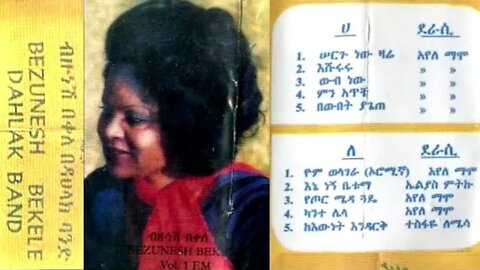 ብዙነሽ በቀለ በዳህላክ ባንድ
BEZUNESH BEKELE
DAHLAK BAND
ብዙነሽ በቀለ
BEZUNESH BEK
Vol. 1 EM
ሀ ደራሲ
1. ሠርጉ ነው ዛሬ አየለ ማሞ
2. እሹሩሩ » »
3. ውብ ነው » »
4. ምን አጥቼ » »
5. በውበት ያጌጠ » »
ለ ደራሲ
1 ዮም ወላገራ (ኦሮሚኛ) አየለ ማሞ
2. እኔ ነኝ ቤቱማ ኤልያስ ምትኩ
3. የጦር ሜዳ ጓዴ አየለ ማሞ
4. ካንተ ሌላ አየለ ማሞ
5. ከእውነት እንዳርቅ ተስፋዬ ለሜሳ